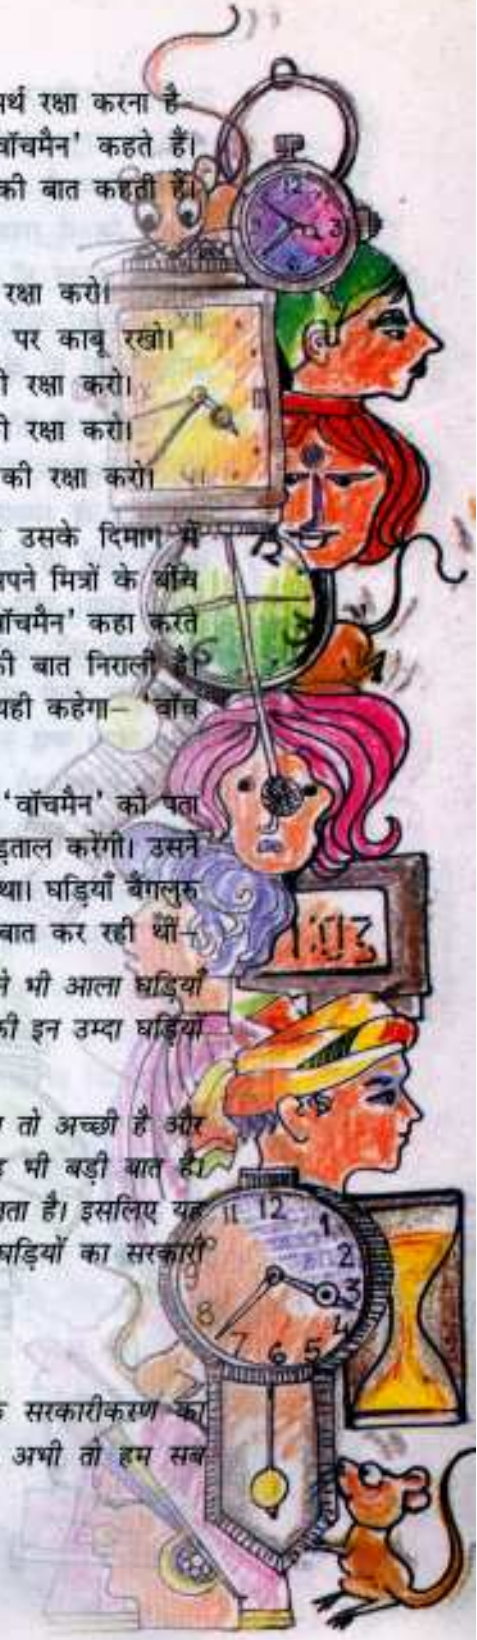 र्थ रक्षा करना है–
वॉचमैन' कहते हैं।
की बात कहती हैं।
रक्षा करो।
पर काबू रखो।
ी रक्षा करो।
ी रक्षा करो।
की रक्षा करो।
उसके दिमाग में
पने मित्रों के बीच
वॉचमैन' कहा करते
की बात निराली है।
यही कहेगा– 'वॉच
'वॉचमैन' को पता
ड़ताल करेंगी। उसने
था। घड़ियाँ बैंगलुरु
बात कर रही थीं–
ने भी आला घड़ियाँ
की इन उम्दा घड़ियों
तो अच्छी है और
ह भी बड़ी बात है।
ता है। इसलिए यह
घड़ियों का सरकारी
के सरकारीकरण का
अभी तो हम सब
12
3
XII
III
VI
12
3
6
1:03
11 12 1
2
3
4
8
7 6 5